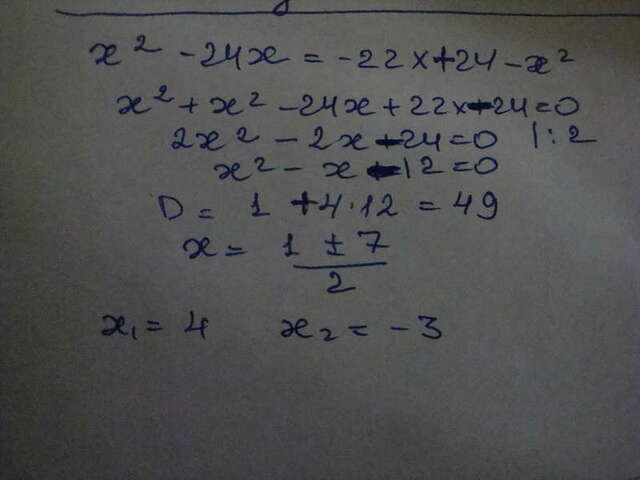 x² - 24x = -22x + 24 - x²
x² + x² - 24x + 22x - 24 = 0
2x² - 2x - 24 = 0 | : 2
x² - x - 12 = 0
D = 1 + 4·12 = 49
x = (1 ± 7)/2
x₁ = 4 x₂ = -3